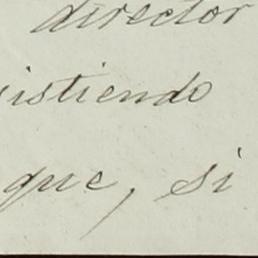 director
istiendo
que, si